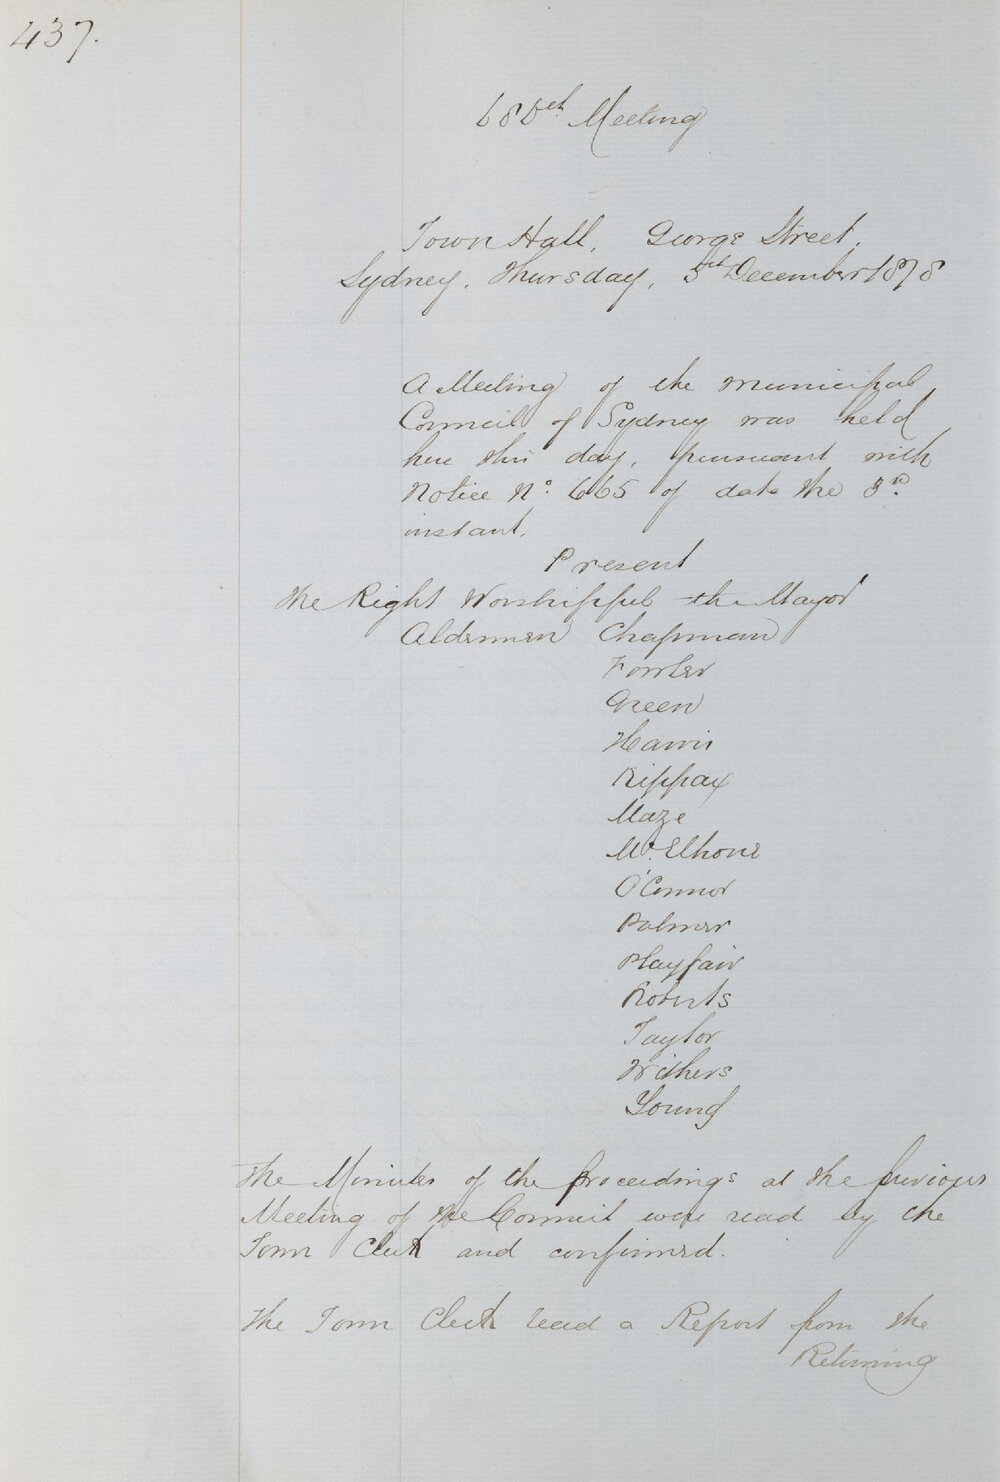 437.
Meeting
Town Hall, George Street,
Sydney, Thursday, 5th December 1878
A Meeting of the Municipal
Council of Sydney was held
here this day, pursuant with
Notice No. 665 of date the 3rd
instant.
Present
The Right Worshipful the Mayor
Aldermen Chapman
Fowler
Green
Harris
Kippax
Maze
Mc.Elhone
O'Connor
Palmer
Playfair
Roberts
Taylor
Withers
Young
The Minutes of the proceedings at the previous
Meeting of the Council were read by the
Town Clerk and confirmed.
The Town Clerk read a Report from the
Returning